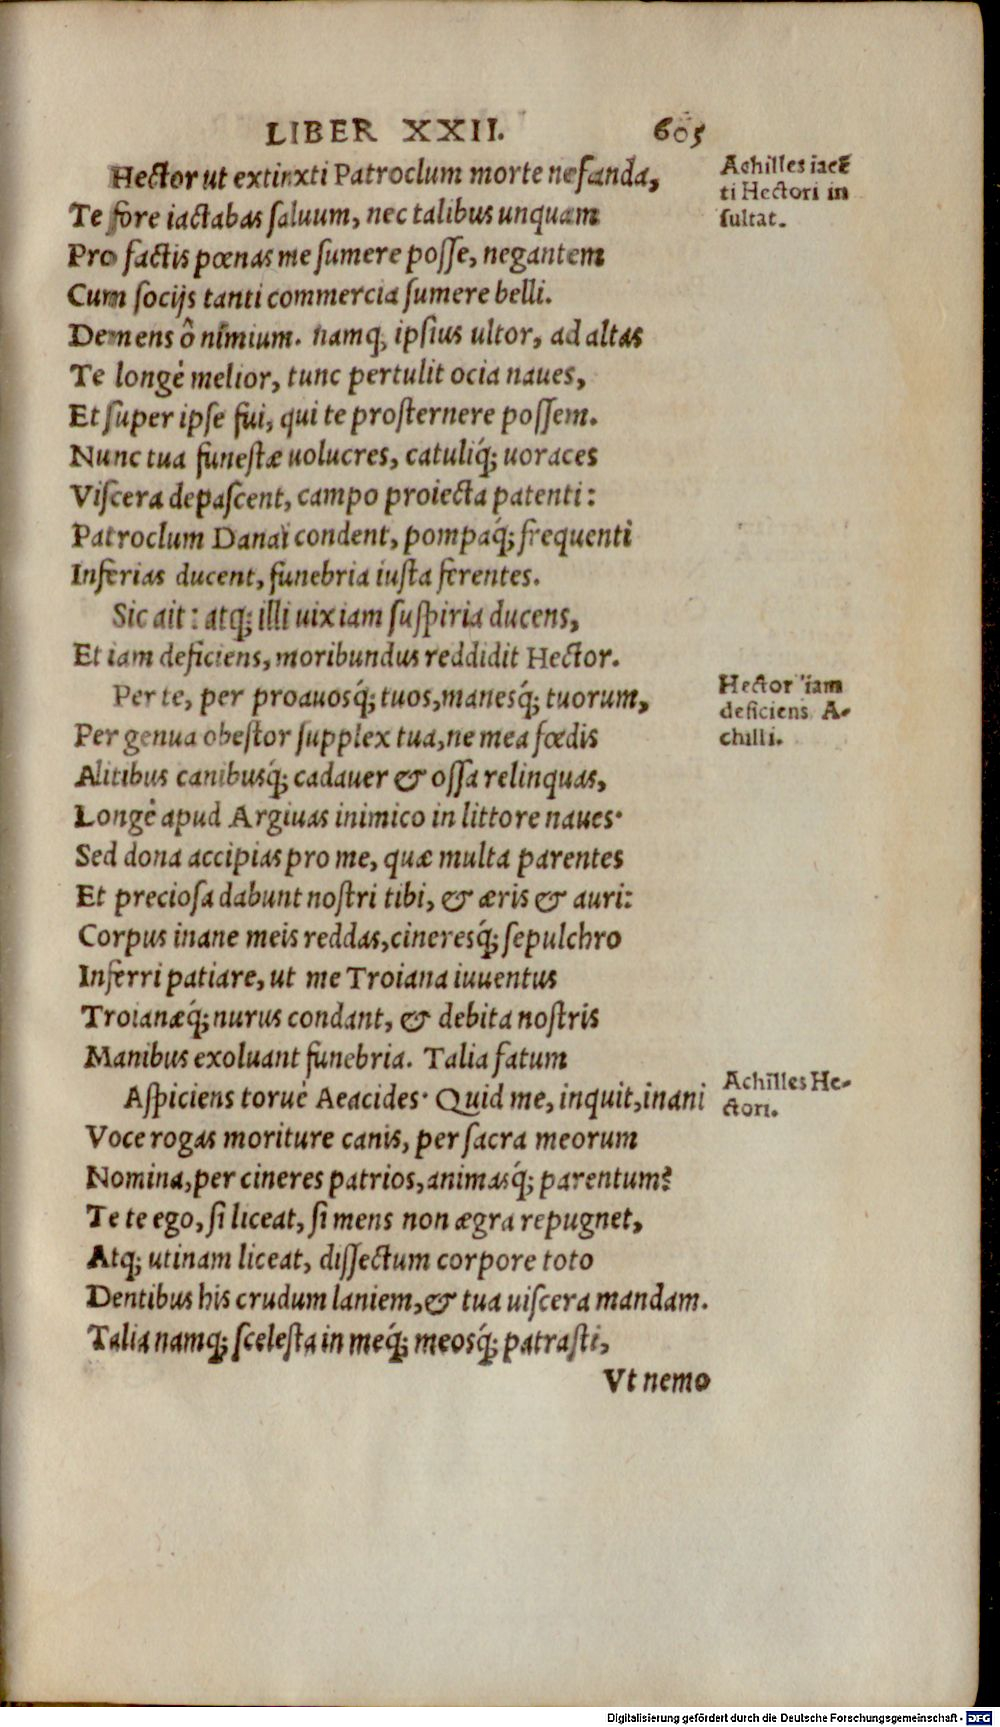 LIBER XXII. 605
Hector ut extinxti Patroclum morte nefanda,
Te fore iactabas saluum, nec talibus unquam
Pro factis pœnas me sumere posse, negantem
Cum socijs tanti commercia sumere belli.
Demens ô nimium. namq; ipsius ultor, ad altas
Te longè melior, tunc pertulit ocia naues,
Et super ipse fui, qui te prosternere possem.
Nunc tua funestæ uolucres, catuliq́; uoraces
Viscera depascent, campo proiecta patenti:
Patroclum Danai condent, pompaq́; frequenti
Inferias ducent, funebria iusta ferentes.
Sic ait: atq; illi uix iam suspiria ducens,
Et iam deficiens, moribundus reddidit Hector.
Per te, per proauosq́; tuos, manesq́; tuorum,
Per genua obestor supplex tua, ne mea fœdis
Alitibus canibusq́; cadauer & ossa relinquas,
Longè apud Argiuas inimico in littore naues.
Sed dona accipias pro me, quæ multa parentes
Et preciosa dabunt nostri tibi, & æris & auri:
Corpus inane meis reddas, cineresq́; sepulchro
Inferri patiare, ut me Troiana iuuentus
Troianæq́; nurus condant, & debita nostris
Manibus exoluant funebria. Talia fatum
Aspiciens toruè Aeacides. Quid me, inquit, inani
Voce rogas moriture canis, per sacra meorum
Nomina, per cineres patrios, animasq́; parentum?
Te te ego, si liceat, si mens non ægra repugnet,
Atq; utinam liceat, dissectum corpore toto
Dentibus his crudum laniem, & tua uiscera mandam.
Talia namq; scelesta in meq́; meosq́; patrasti,
Vt nemo
Achilles iacẽ
ti Hectori in
sultat.
Hector iam
deficiens A-
chilli.
Achilles He-
ctori.
Digitalisierung gefördert durch die Deutsche Forschungsgemeinschaft - DFG